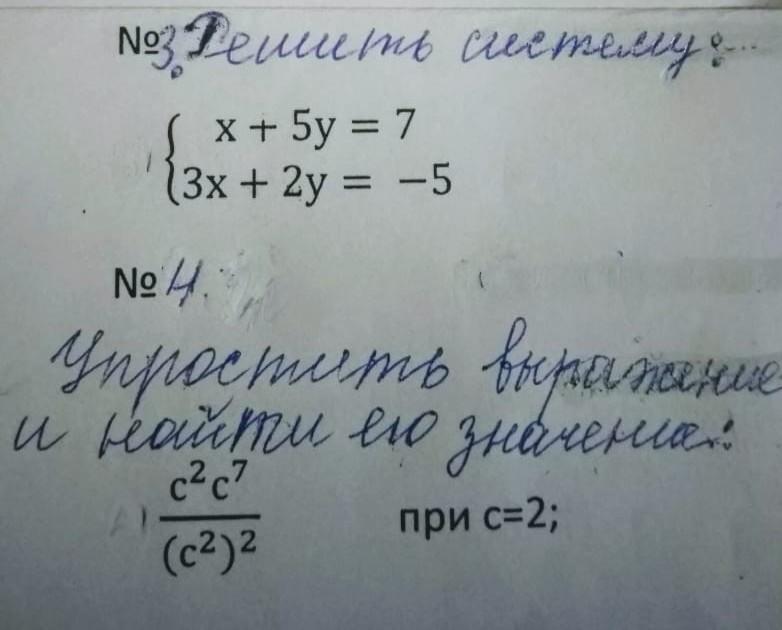 №3. Решить систему:
{ x + 5y = 7
3x + 2y = −5
№4.
Упростить выражение
и найти его значение:
c²c⁷
(c²)²
при c=2;